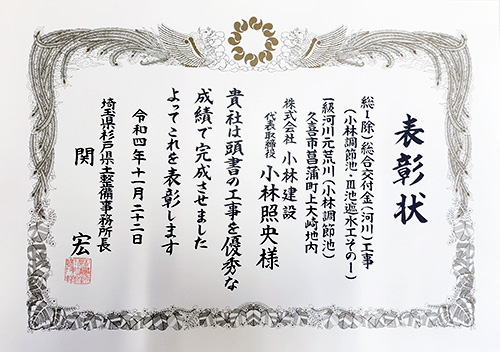 表彰状
総Ⅰ除)総合交付金(河川)工事
(小林調節池・Ⅲ池遮水工その1)
一級河川元荒川(小林調節池)
久喜市菖蒲町上大崎地内
株式会社 小林建設
代表取締役 小林照央様
貴社は頭書の工事を優秀な
成績で完成させました
よってこれを表彰します
令和四年十一月二十二日
埼玉県杉戸県土整備事務所長
関 宏